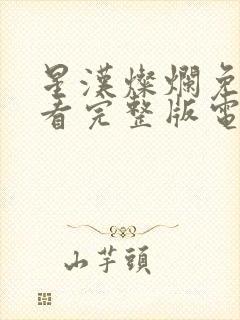 星漢燦爛免
看完整版電
山芋頭